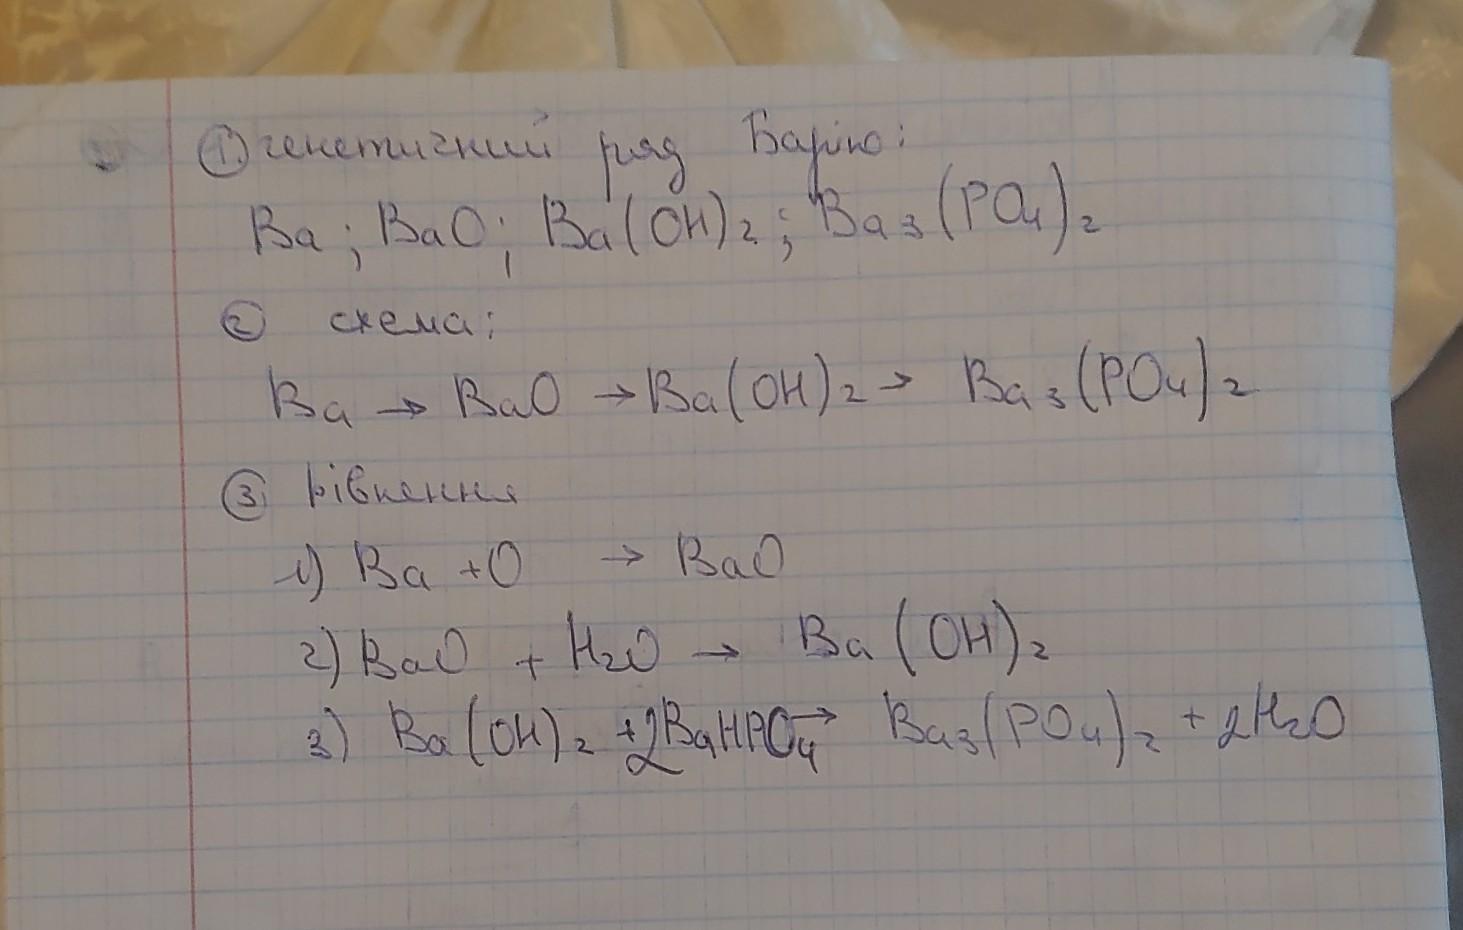 ① генетичний ряд Барію:
Ba; BaO; Ba(OH)₂; Ba₃(PO₄)₂
② схема:
Ba → BaO → Ba(OH)₂ → Ba₃(PO₄)₂
③ рівнення
1) Ba + O → BaO
2) BaO + H₂O → Ba(OH)₂
3) Ba(OH)₂ + 2BaHPO₄ → Ba₃(PO₄)₂ + 2H₂O